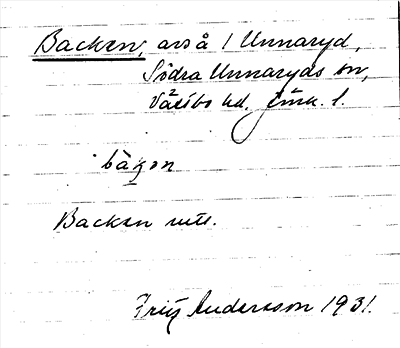 Backen, avs å 1 Unnaryd,
Södra Unnaryds sn,
Västbo hd, Jönk. l.
bàkən
Backen utt.
Fritz Andersson 1931.